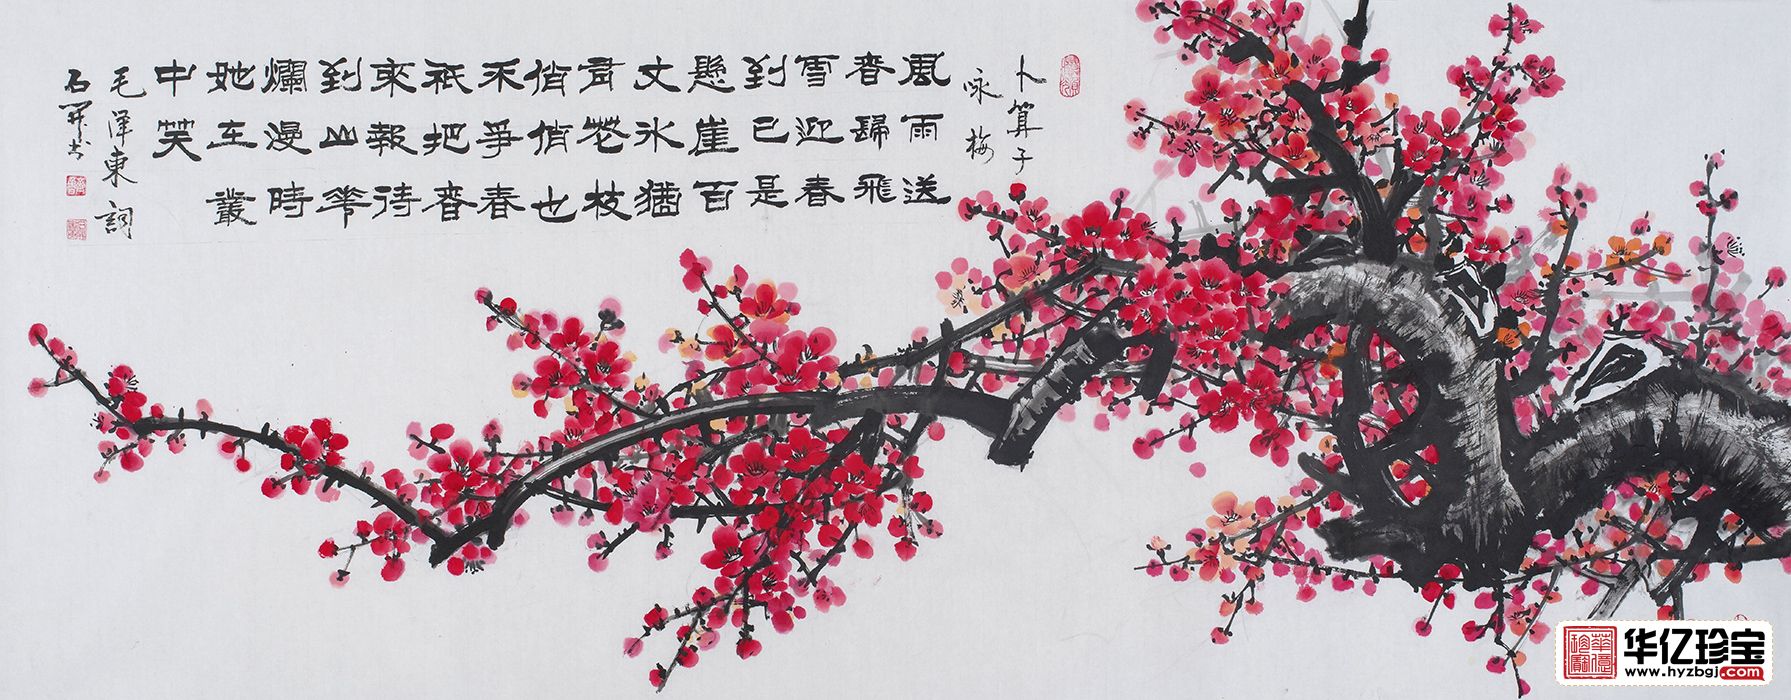 卜算子
咏梅
風雨送
春歸飛
雪迎春
到已是
懸崖百
丈冰猶
有花枝
俏俏也
不爭春
祇把春
來報待
到山花
爛漫時
她在叢
中笑
毛澤東詞
石開书
华亿珍宝
www.hyzbgj.com